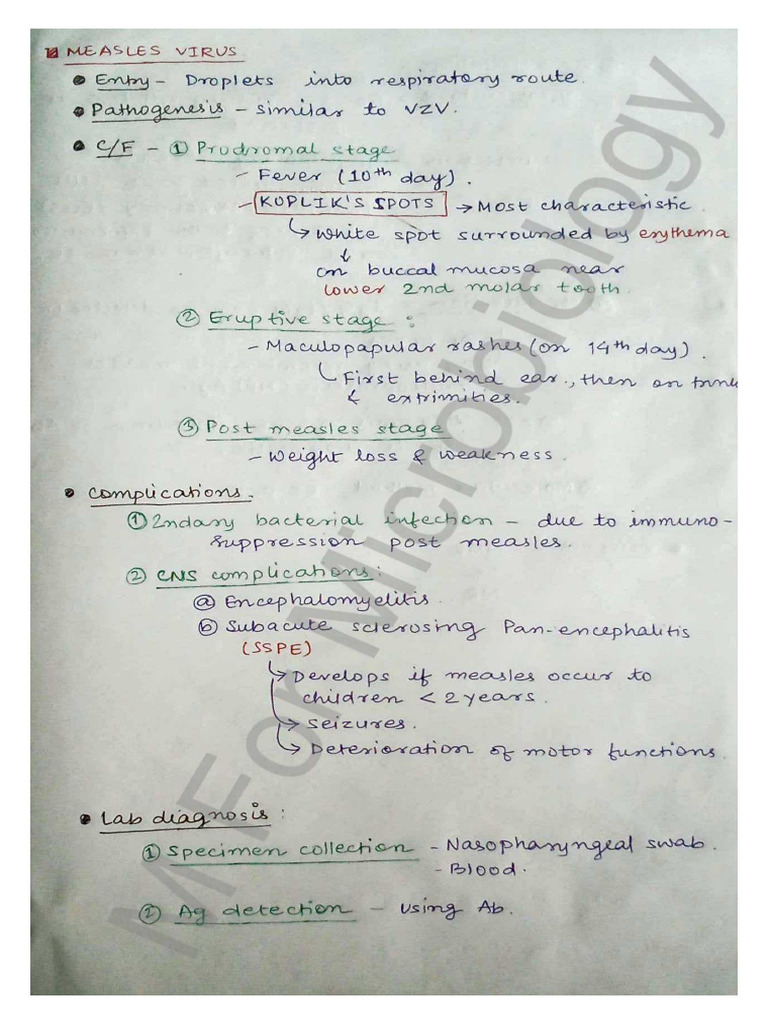 MEASLES VIRUS
• Entry - Droplets into respiratory route.
• Pathogenesis - similar to VZV.
• C/F - ① Prodromal stage
- Fever (10th day).
- KOPLIK'S SPOTS → Most characteristic.
↳ White spot surrounded by erythema
↓
on buccal mucosa near
lower 2nd molar tooth.
② Eruptive stage :
- Maculopapular rashes (on 14th day).
↳ First behind ear, then on trunk
& extrimities.
③ Post measles stage
- Weight loss & weakness.
• Complications.
① 2ndary bacterial infection - due to immuno-
suppression post measles.
② CNS complications:
ⓐ Encephalomyelitis.
ⓑ Subacute sclerosing Pan-encephalitis
(SSPE)
↳ Develops if measles occur to
children < 2 years.
↳ Seizures.
↳ Deterioration of motor functions.
• Lab diagnosis :
① Specimen collection - Nasopharyngeal swab.
- Blood.
② Ag detection - using Ab.
M For Microbiology